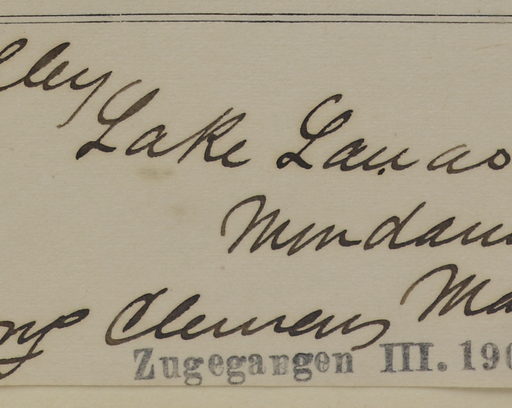 lley
Lake Lanao
Mindanao
Clemens Ma
Zugegangen III. 190